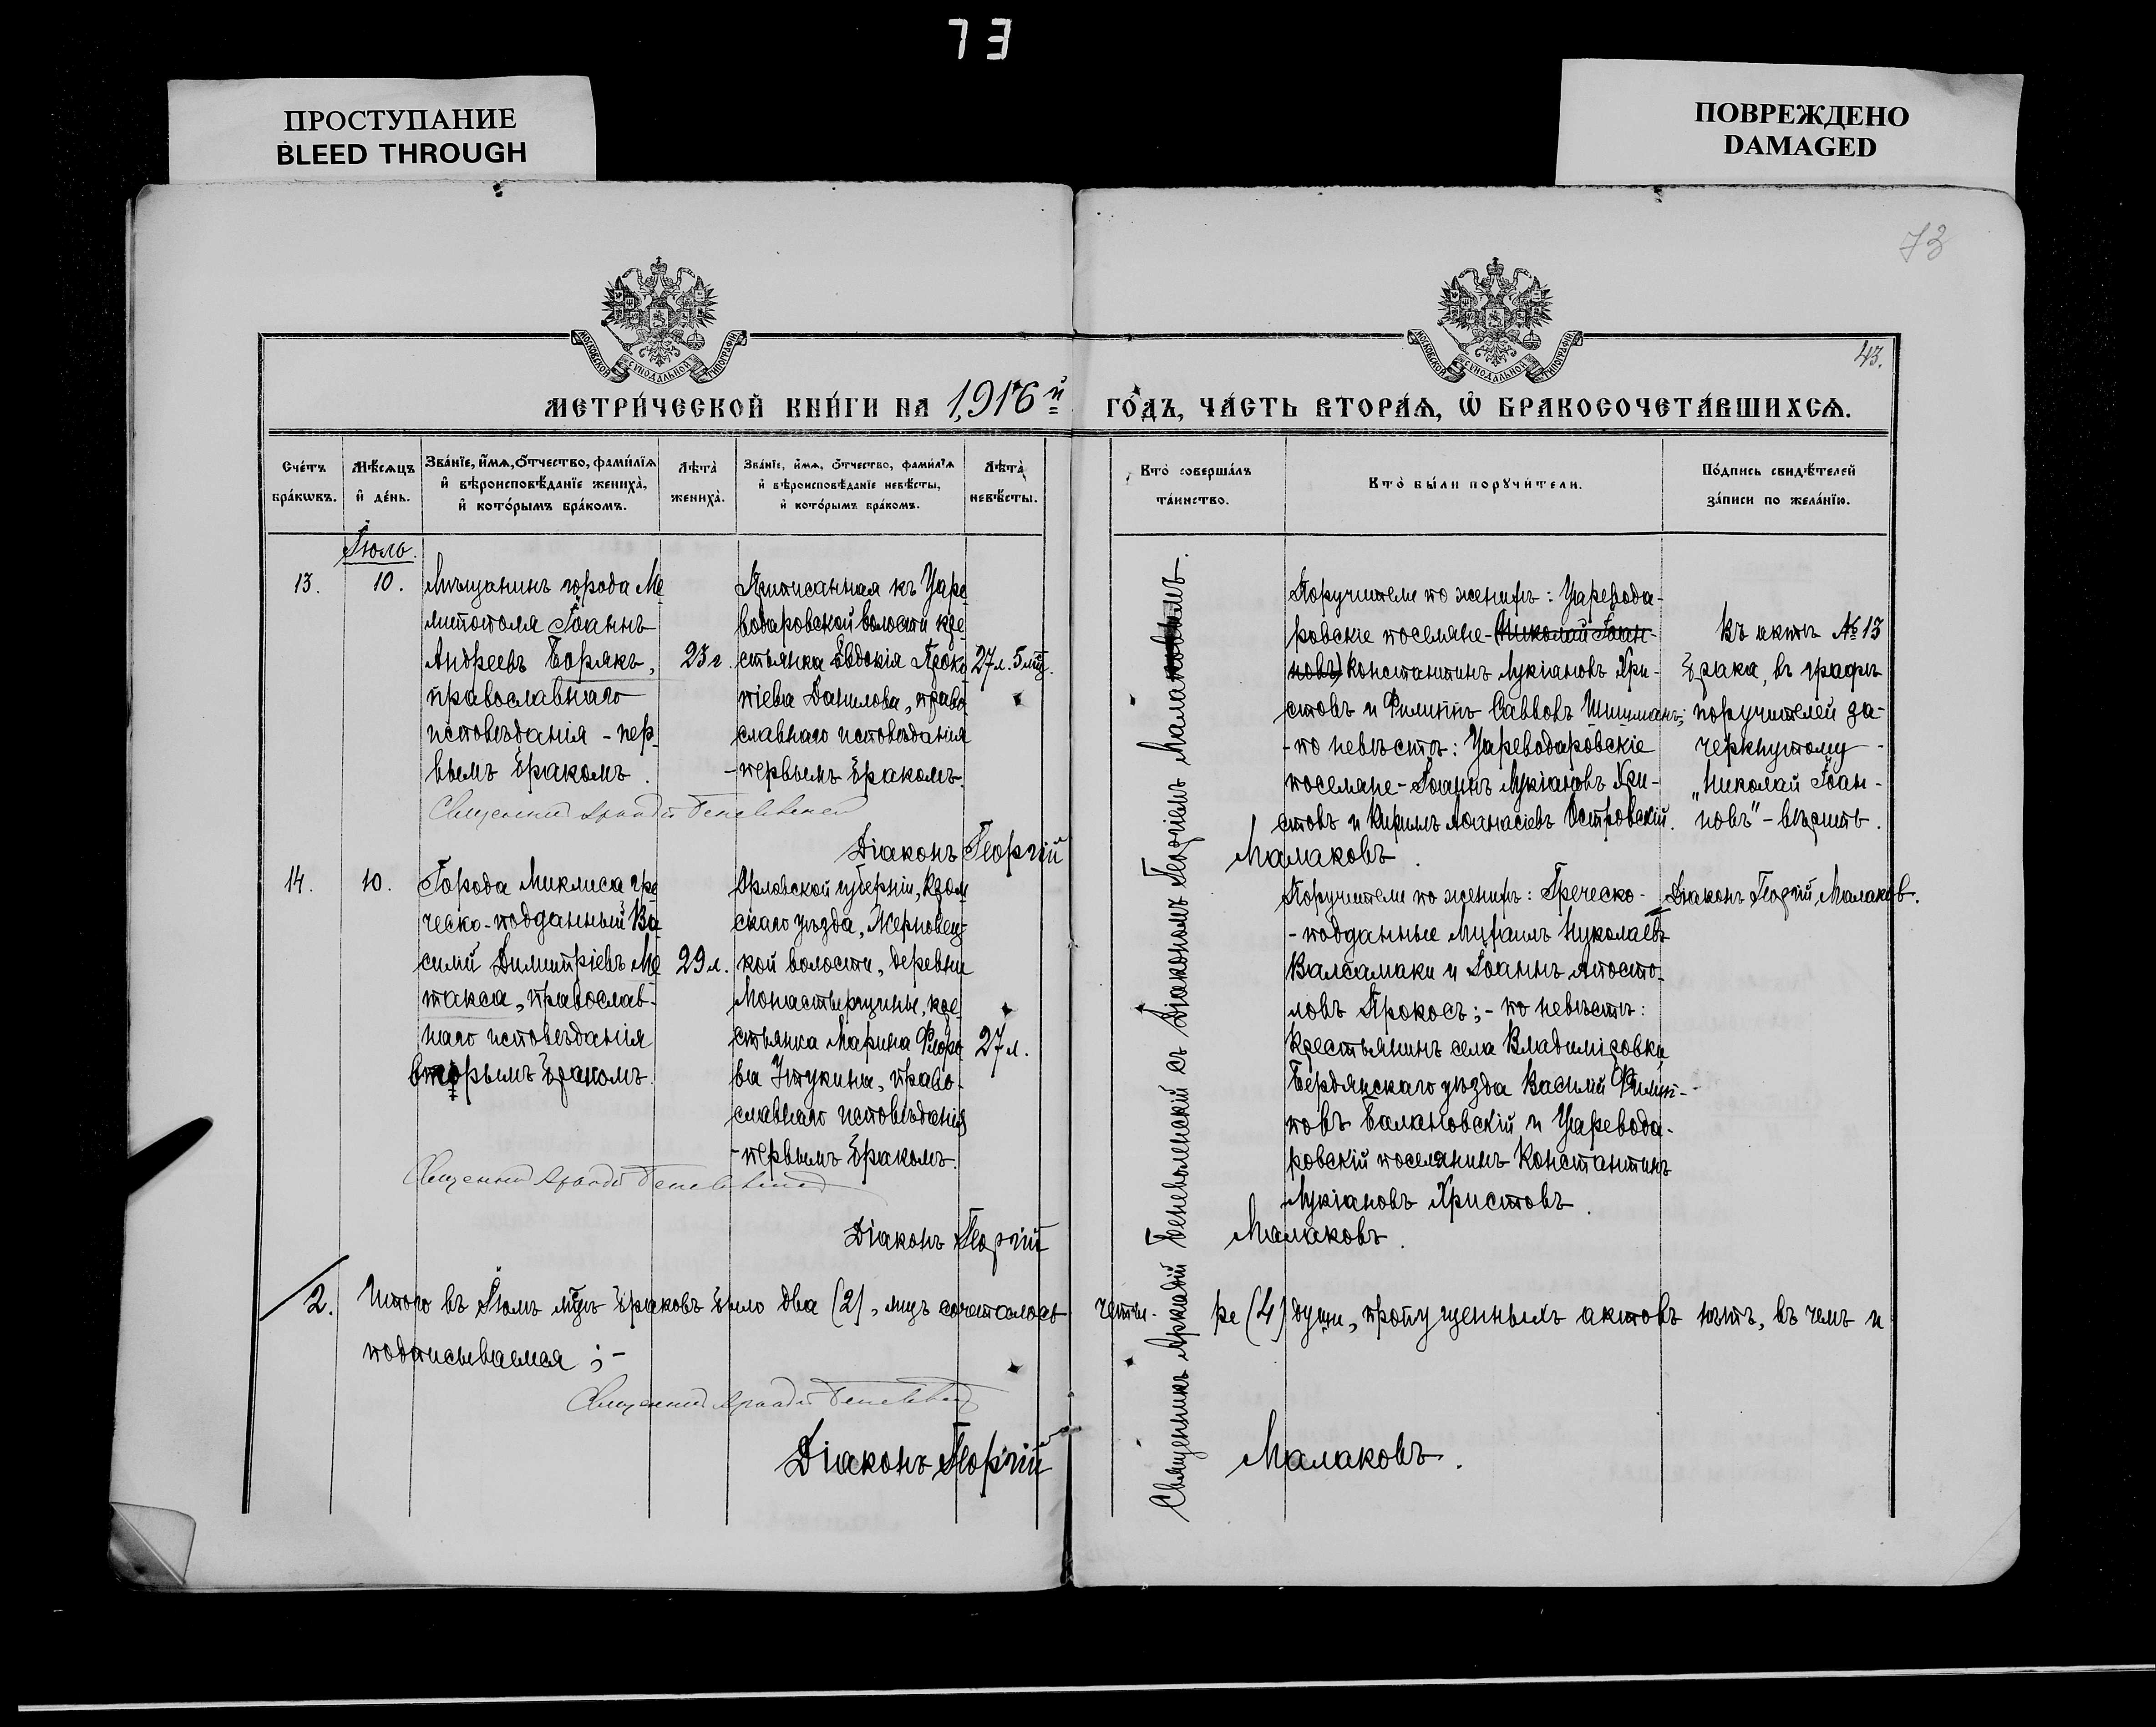 73
ПРОСТУПАНИЕ
BLEED THROUGH
ПОВРЕЖДЕНО
DAMAGED
73
43.
МОСКОВСКОЙ СѴНОДАЛЬНОЙ ТИПОГРАФІИ
МОСКОВСКОЙ СѴНОДАЛЬНОЙ ТИПОГРАФІИ
МЕТРИ́ЧЕСКОЙ КНИ́ГИ НА 1916й ГО́ДЪ, ЧА́СТЬ ВТОРА́Ѧ, Ѿ БРАКОСОЧЕТА́ВШИХСѦ.
Сче́тъ бра́кѡвъ.
Мѣ́сѧцъ и҆ де́нь.
Зва́нїе, и҆́мѧ, о҆́тчество, фами́лїѧ и҆ вѣроисповѣ́данїе жениха̀, и҆ кото́рымъ бра́комъ.
Лѣ́та жениха̀.
Зва́нїе, и҆́мѧ, о҆́тчество, фами́лїѧ и҆ вѣроисповѣ́данїе невѣ́сты, и҆ кото́рымъ бра́комъ.
Лѣ́та невѣ́сты.
Кто̀ соверша́лъ та́инство.
Кто̀ бы́ли порꙋчи́тели.
По́дпись свидѣ́телей за́писи по жела́нїю.
Іюль.
13.
10.
Мѣщанинъ города Ме-
литополя Іоаннъ
Андреевъ Борякъ,
православнаго
исповѣданія - пер-
вымъ бракомъ.
23 г.
Приписанная къ Царе-
водаровской волости кре-
стьянка Евдокія Проко-
піева Данилова, право-
славнаго исповѣданія
- первымъ бракомъ.
27 л. 5 мѣц.
Священникъ Аркадій Беневоленскій съ Діакономъ Георгіемъ Малаковымъ.
Поручители по женихѣ: Царевода-
ровскіе поселяне - (Николай Іоан-
новъ) Константинъ Лукіановъ Хри-
стовъ и Филиппъ Саввовъ Шишманъ;
- по невѣстѣ: Цареводаровскіе
поселяне - Іоаннъ Лукіановъ Хри-
стовъ и Кириллъ Аѳанасіевъ Островскій.
Къ актъ № 13
брака, въ графѣ
поручителей за-
черкнутому -
„Николай Іоан-
новъ" - вѣрить.
Діаконъ Георгій Малаковъ.
Священникъ Аркадій Беневоленскій
Діаконъ Георгій Малаковъ.
14.
10.
Города Миклиса гре-
ческо-подданный Ва-
силій Димитріевъ Ме-
такса, православ-
наго исповѣданія
вторымъ бракомъ.
29 л.
Орловской губерніи, Кром-
скаго уѣзда, Жерновец-
кой волости, деревни
Монастырщины, кре-
стьянка Марина Ѳеоро-
ва Итукина, право-
славнаго исповѣданія
- первымъ бракомъ.
27 л.
Поручители по женихѣ: Греческо-
- подданные Михаилъ Николаевъ
Валсамаки и Іоаннъ Апосто-
ловъ Прокосъ; - по невѣстѣ:
Крестьянинъ села Владиміровки
Бердянскаго уѣзда Василій Филип-
повъ Балановскій и Царевода-
ровскій поселянинъ Константинъ
Лукіановъ Христовъ.
Священникъ Аркадій Беневоленскій
Діаконъ Георгій Малаковъ.
2. Итого въ Іюлѣ мѣцѣ браковъ было два (2), лицъ сочеталось четы-ре (4) души, пропущенныхъ актовъ нѣтъ, въ чемъ и
подписываемся ;-
Священникъ Аркадій Беневоленскій
Діаконъ Георгій Малаковъ.